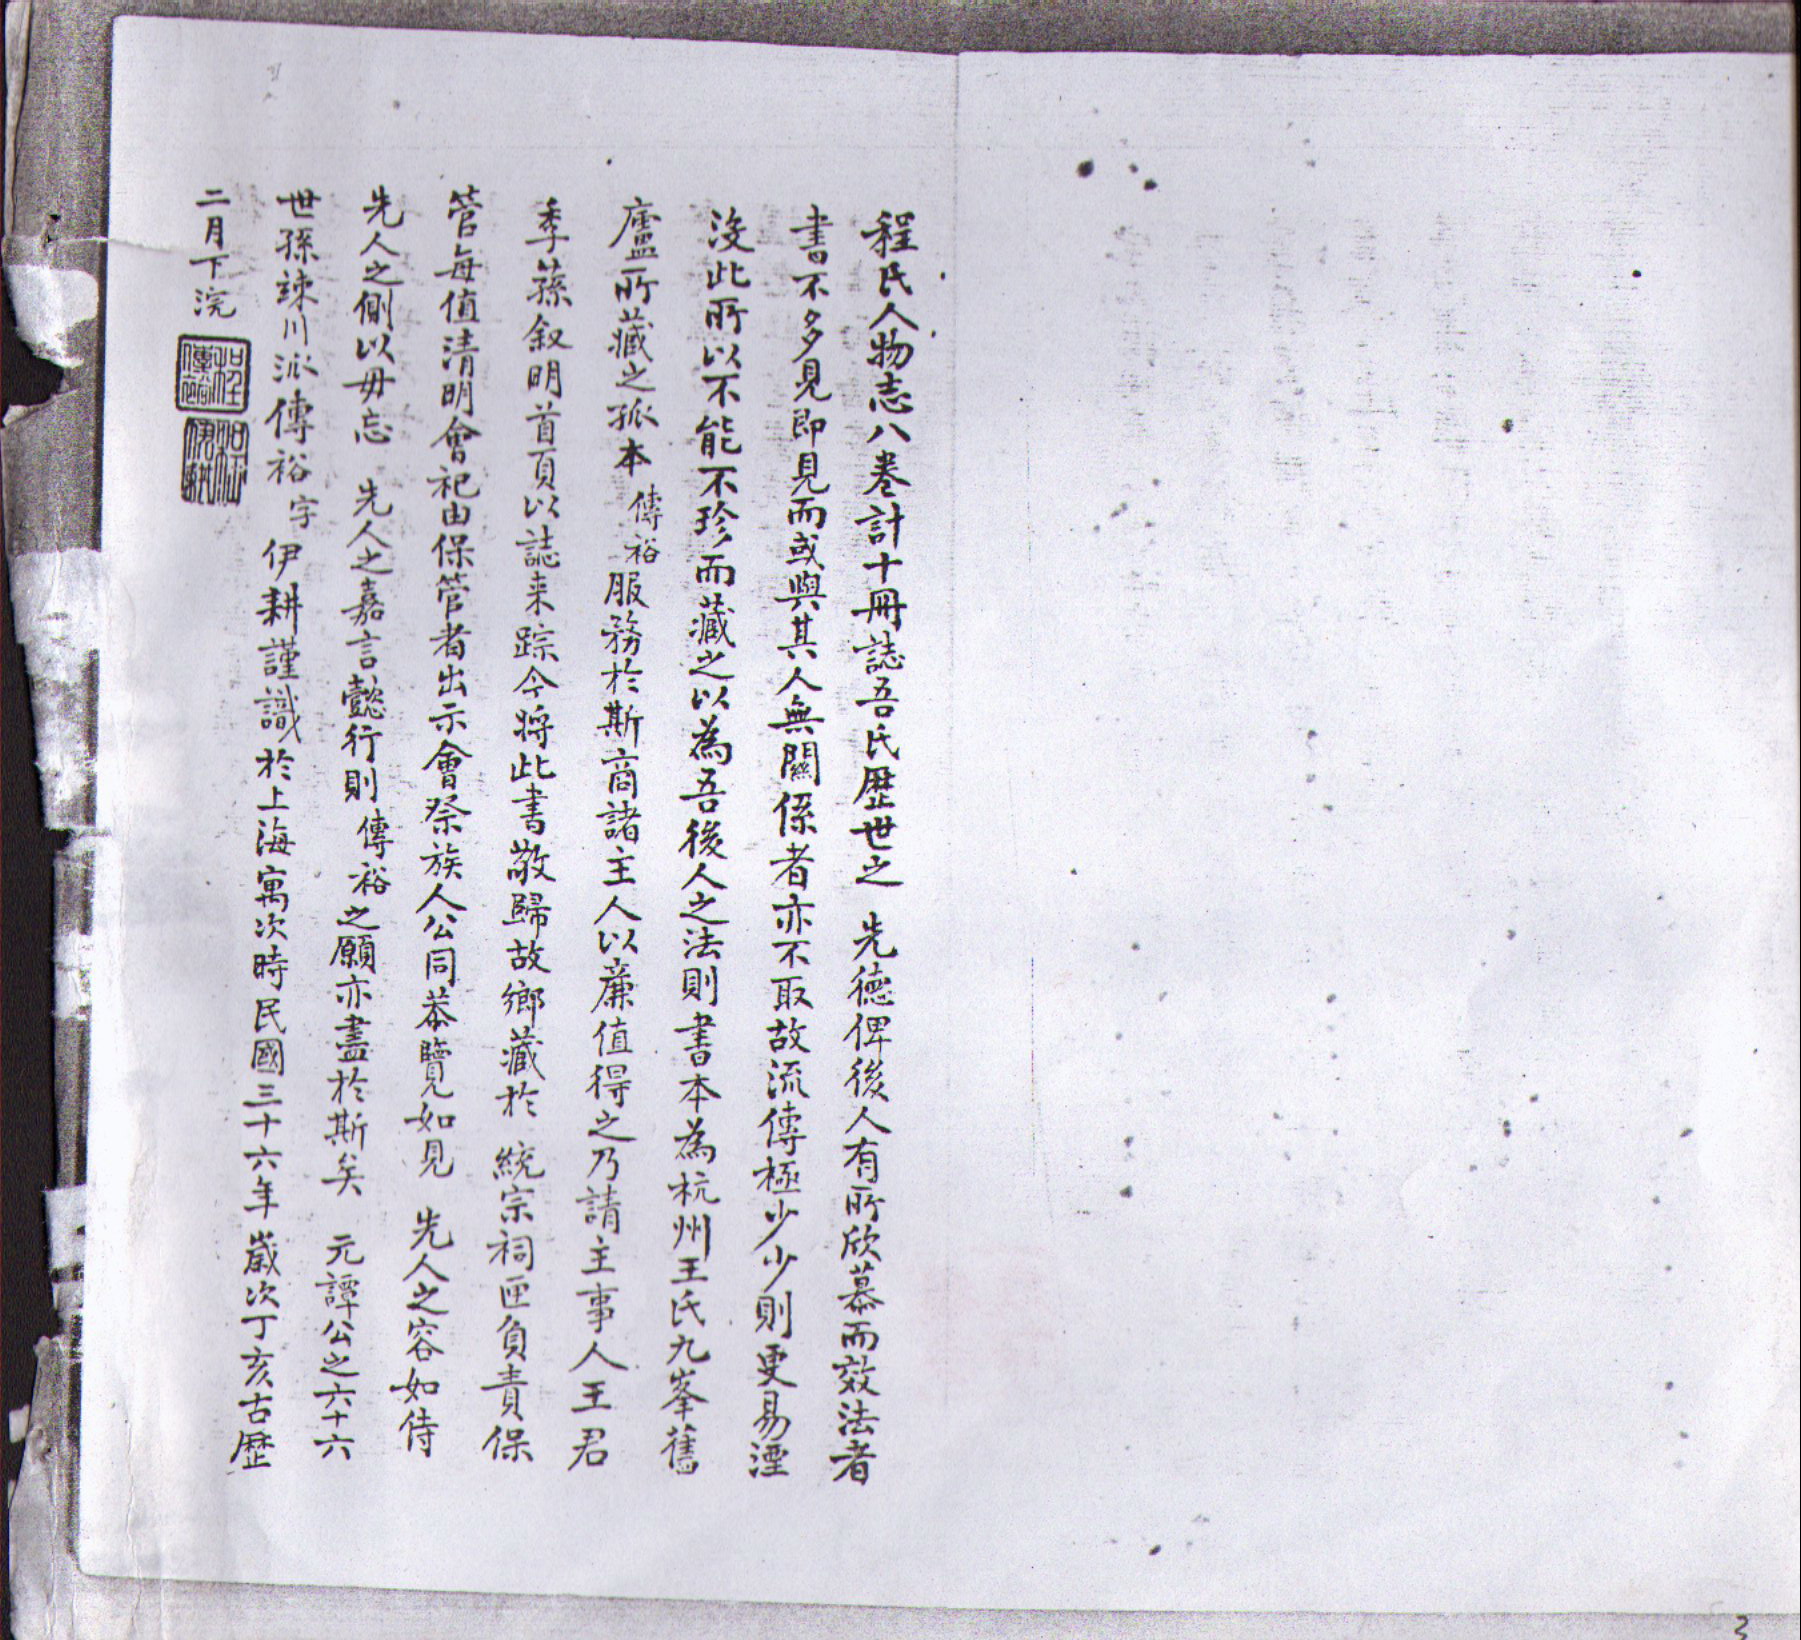 程氏人物志八卷計十冊誌吾氏歷世之 先德俾後人有所欣慕而效法者
書不多見即見而或與其人無關係者亦不取故流傳極少少則更易湮
沒此所以不能不珍而藏之以為吾後人之法則書本為杭州王氏九峯舊
廬所藏之孤本傳裕服務於斯商諸主人以廉值得之乃請主事人王君
季蓀叙明首頁以誌来踪今將此書敬歸故鄉藏於 統宗祠匣負責保
管每值清明會祀由保管者出示會祭族人公同恭覽如見 先人之容如侍
先人之側以毋忘 先人之嘉言懿行則傳裕之願亦盡於斯矣 元譚公之六十六
世孫竦川派傳裕字伊耕謹識於上海寓次時民國三十六年歲次丁亥古歷
二月下浣
3